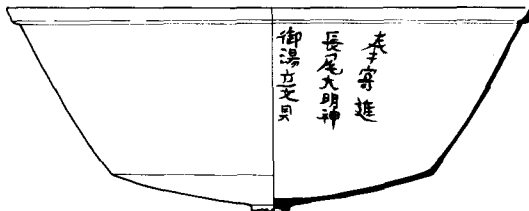 奉寄進
長尾大明神
御湯立